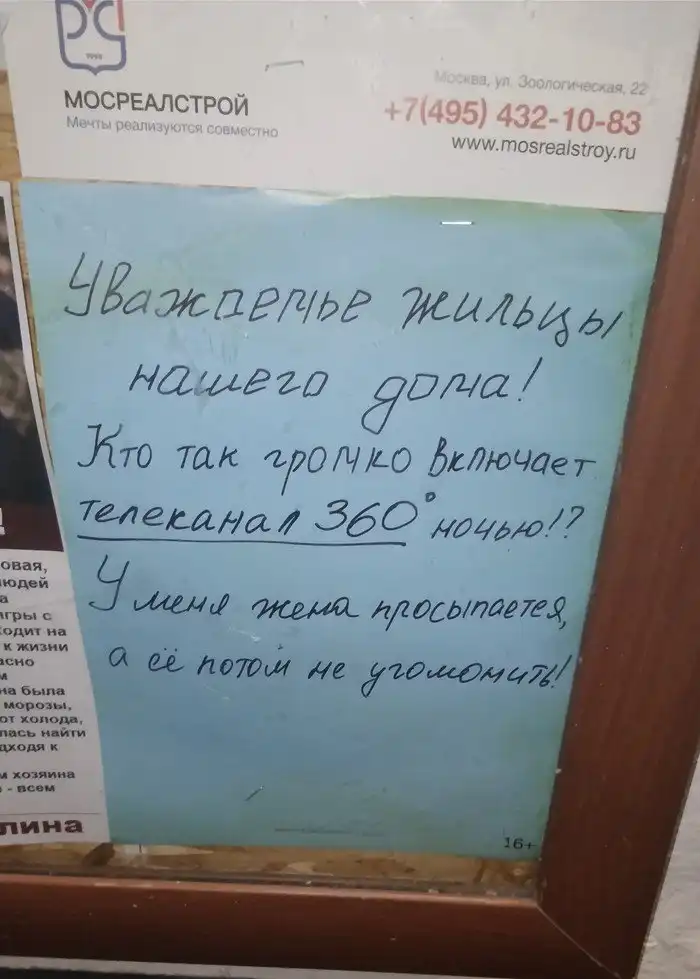 РС
1993
МОСРЕАЛСТРОЙ
Мечты реализуются совместно
Москва, ул. Зоологическая, 22
+7(495) 432-10-83
www.mosrealstroy.ru
Уважаемые жильцы
нашего дома!
Кто так громко включает
телеканал 360° ночью!?
У меня жена просыпается,
а её потом не угомонить!
16+
овая,
людей
а
игры с
ходит на
к жизни
асно
м
на была
морозы,
от холода,
лась найти
дходя к
м хозяина
- всем
лина